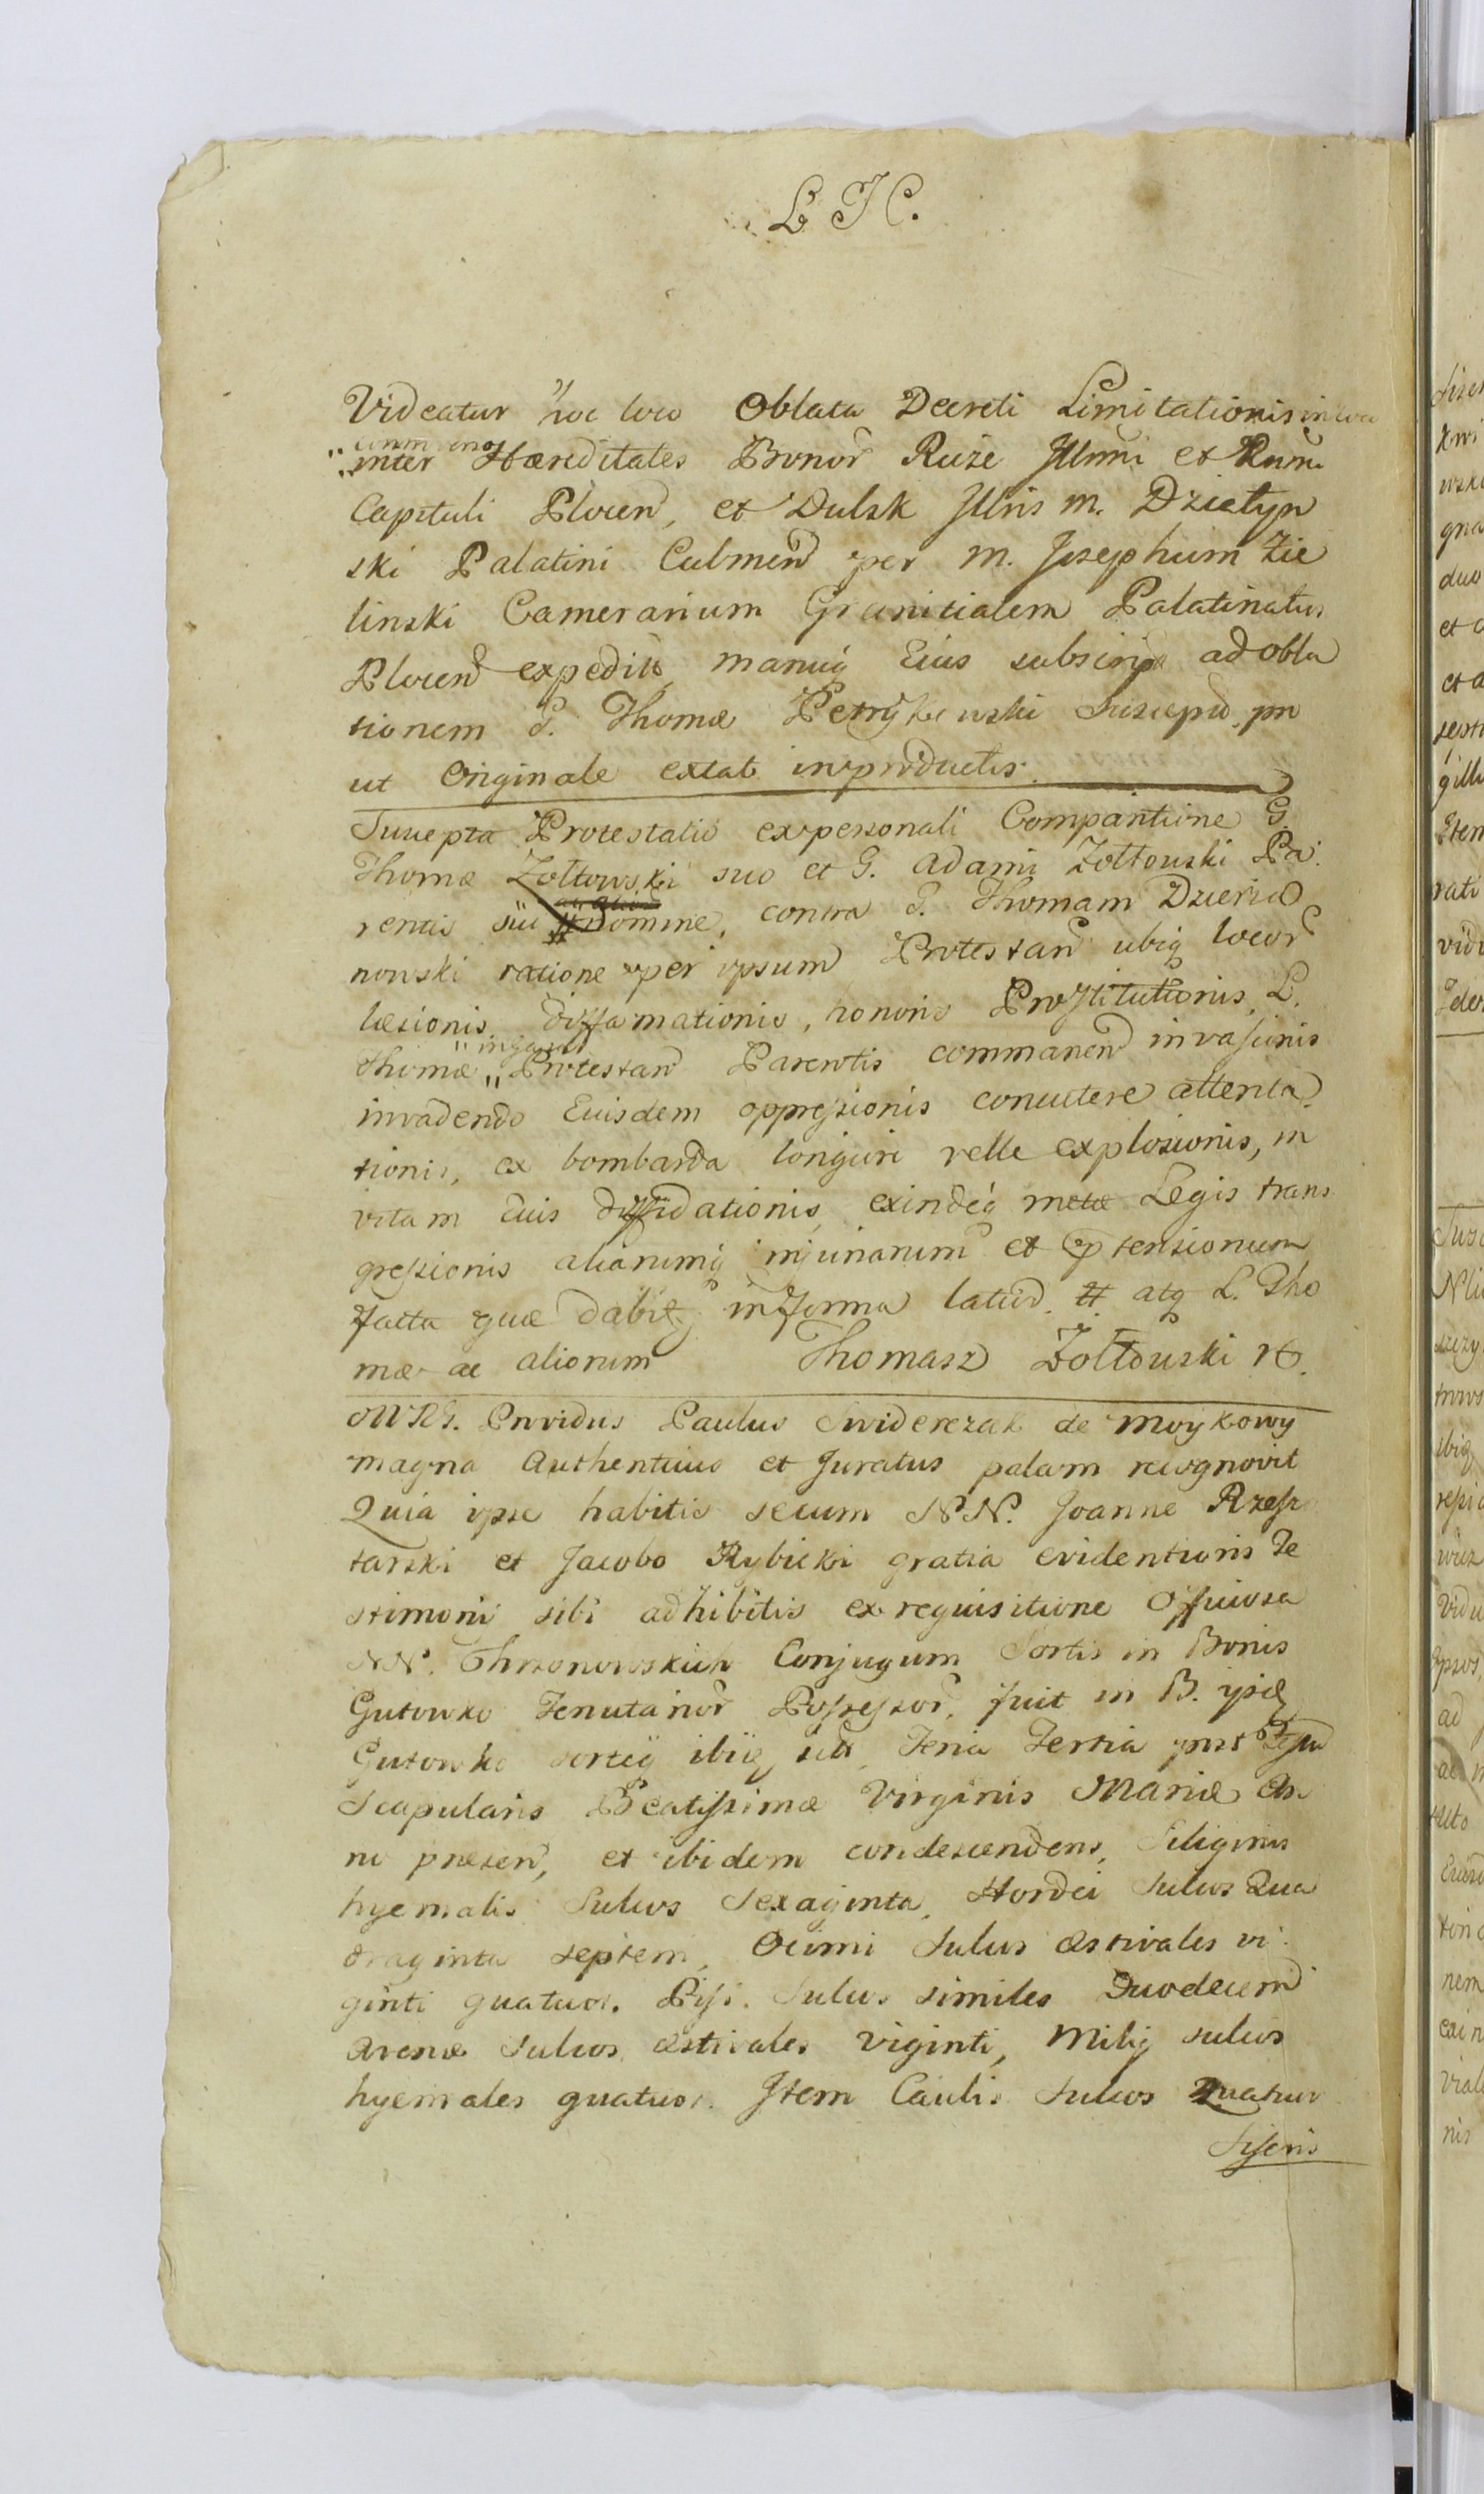 L J C.
Videatur hoc loco Oblata Decreti Limitationis in
inter Hæreditates Bonor Ruże Illmi et Rnmi
Capituli Plocen, et Dulsk Illris M. Działyn
ski Palatini Culmen per M. Josephum Zie
linski Camerarium Granicialem Palatinatus
Plocen expediti, manuq Eius subscripti ad obla
tionem P. Thomæ Suscepta, pro
ut Originale extat in productis.
Suscepta Protestatio ex personali Comparitione G.
Thomæ Zołtowski suo et G. Adami Zołtowski Pa
rentis sui Nomine, contra P. Thomam Dzierża
nowski ratione per ipsum Protestan ubiq locor
læsionis, diffamationis, honoris Prostitutionis, L.
Thomæ „ Protestan Parentis commanen invasionis
invadendo Eiusdem oppressionis concutere attenta
tionis, ex bombarda longiori velle explosionis, in
vitam Eius diffidationis, exindeq metæ Legis trans
gressionis aliarumq injuriarum et ptensionum
facta quæ dabit in forma latiori tt. atq L. Tho
mæ ac aliorum Thomasz Zołtowski
MRG. Providus Paulus Swiderczak de Moykowy
magna Authenticus et Juratus palam recognovit
Quia ipse habitis secum NN. Joanne Rzesz
tarski et Jacobo Rybicki gratia evidentioris Te
stimonii sibi adhibitis ex requisitione Officiosa
NN. Chrzonowskich Conjugum Sortis in Bonis
Gutowko Tenutarior Possessor, fuit in B. ipsis
Gutowko sorteq ibiq sitt, Feria Tertia post Festum
Scapularis Beatissimæ Virginis Mariæ An
no præsen, et ibidem condescendens, Siliginis
hyemalis Sulcos Sexaginta, Hordei Sulcos Qua
draginta septem, Ocimi Sulcos æstivales vi
ginti quatuor. Pisi Sulcos similes Duodecem
Avenæ Sulcos æstivales viginti, Milij sulcos
hyemales quatuor. Item Caulis Sulcos Quatuor
Siseris